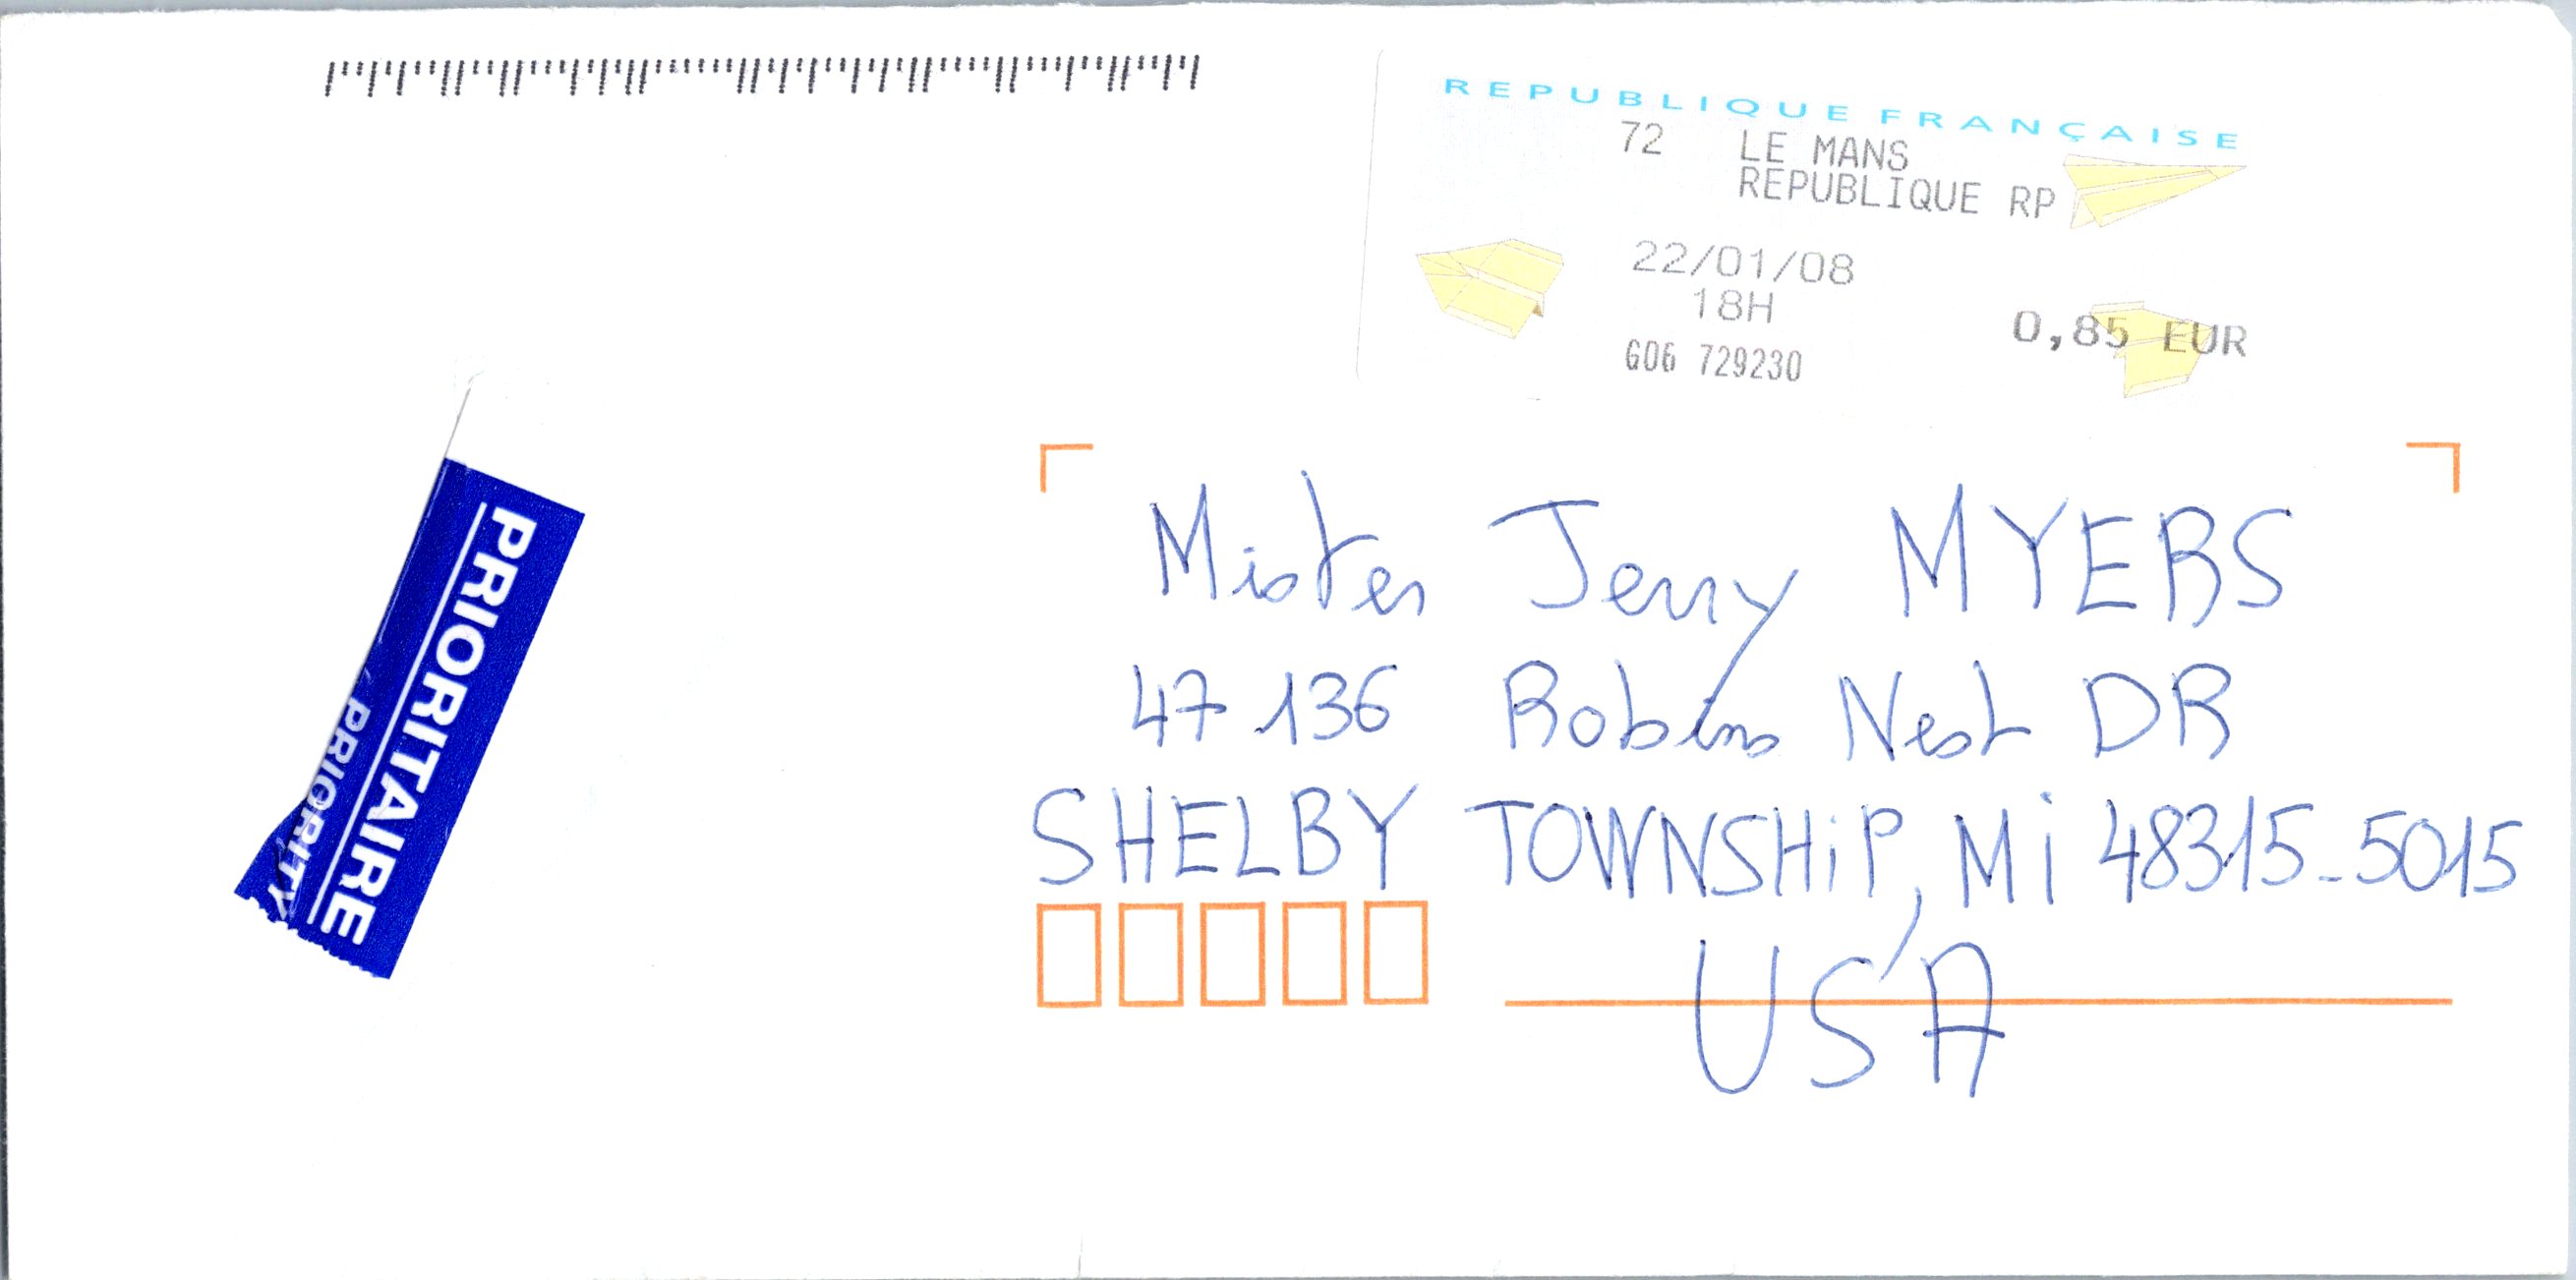 REPUBLIQUE FRANÇAISE
72 LE MANS
REPUBLIQUE RP
22/01/08
18H
0,85 EUR
G06 729230
PRIORITAIRE
/ PRIORITY
Mister Jerry MYERS
47 136 Robins Nest DR
SHELBY TOWNSHiP, Mi 48315-5015
USA